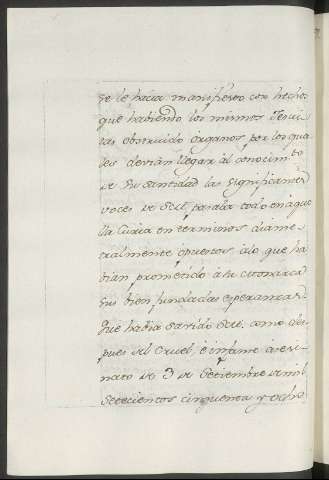 se le hacia manifiesto con hechos
que habiendo los mismos Jesui
tas obstruido órganos, por los qua
les devian llegar al conocim.to
de Su Santidad las
voces de pasaba todo en aque
lla Curia en terminos diame
tralmente opuestos a lo que ha
bian prometido a tu Monarca
sus bien fundadas esperanzas.
Que habia savido como des
pues del cruel, é infame asesi
nato de 3 de Septiembre de mil
setecientos cinquenta y ocho